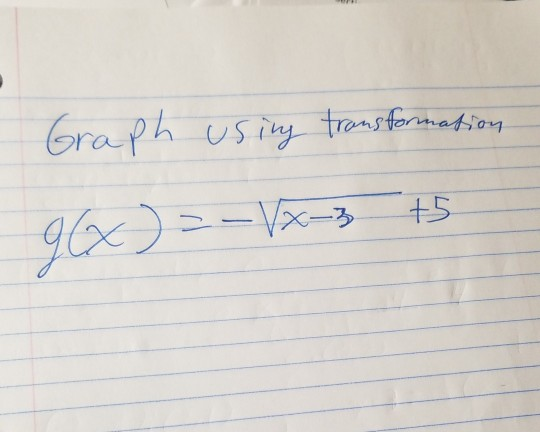 Graph using transformation
g(x) = -√x-3 +5